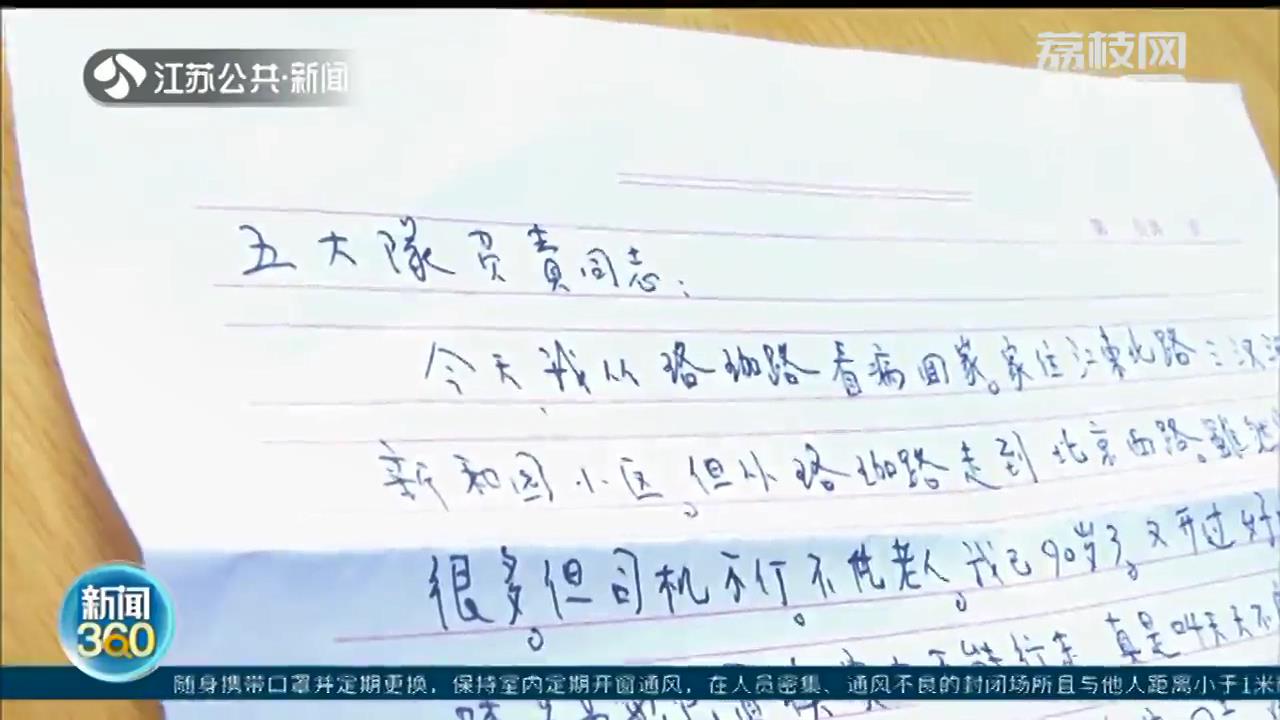 江苏公共·新闻
荔枝网
五大队负责同志：
今天我从珞珈路看病回家。家住江东北路三汊河
新和园小区。但从珞珈路走到北京西路。虽然
很多。但司机不行不优老人。我已90岁了。又开过好
能行走 真是叫天天不
新闻
360
随身携带口罩并定期更换，保持室内定期开窗通风，在人员密集、通风不良的封闭场所且与他人距离小于1米